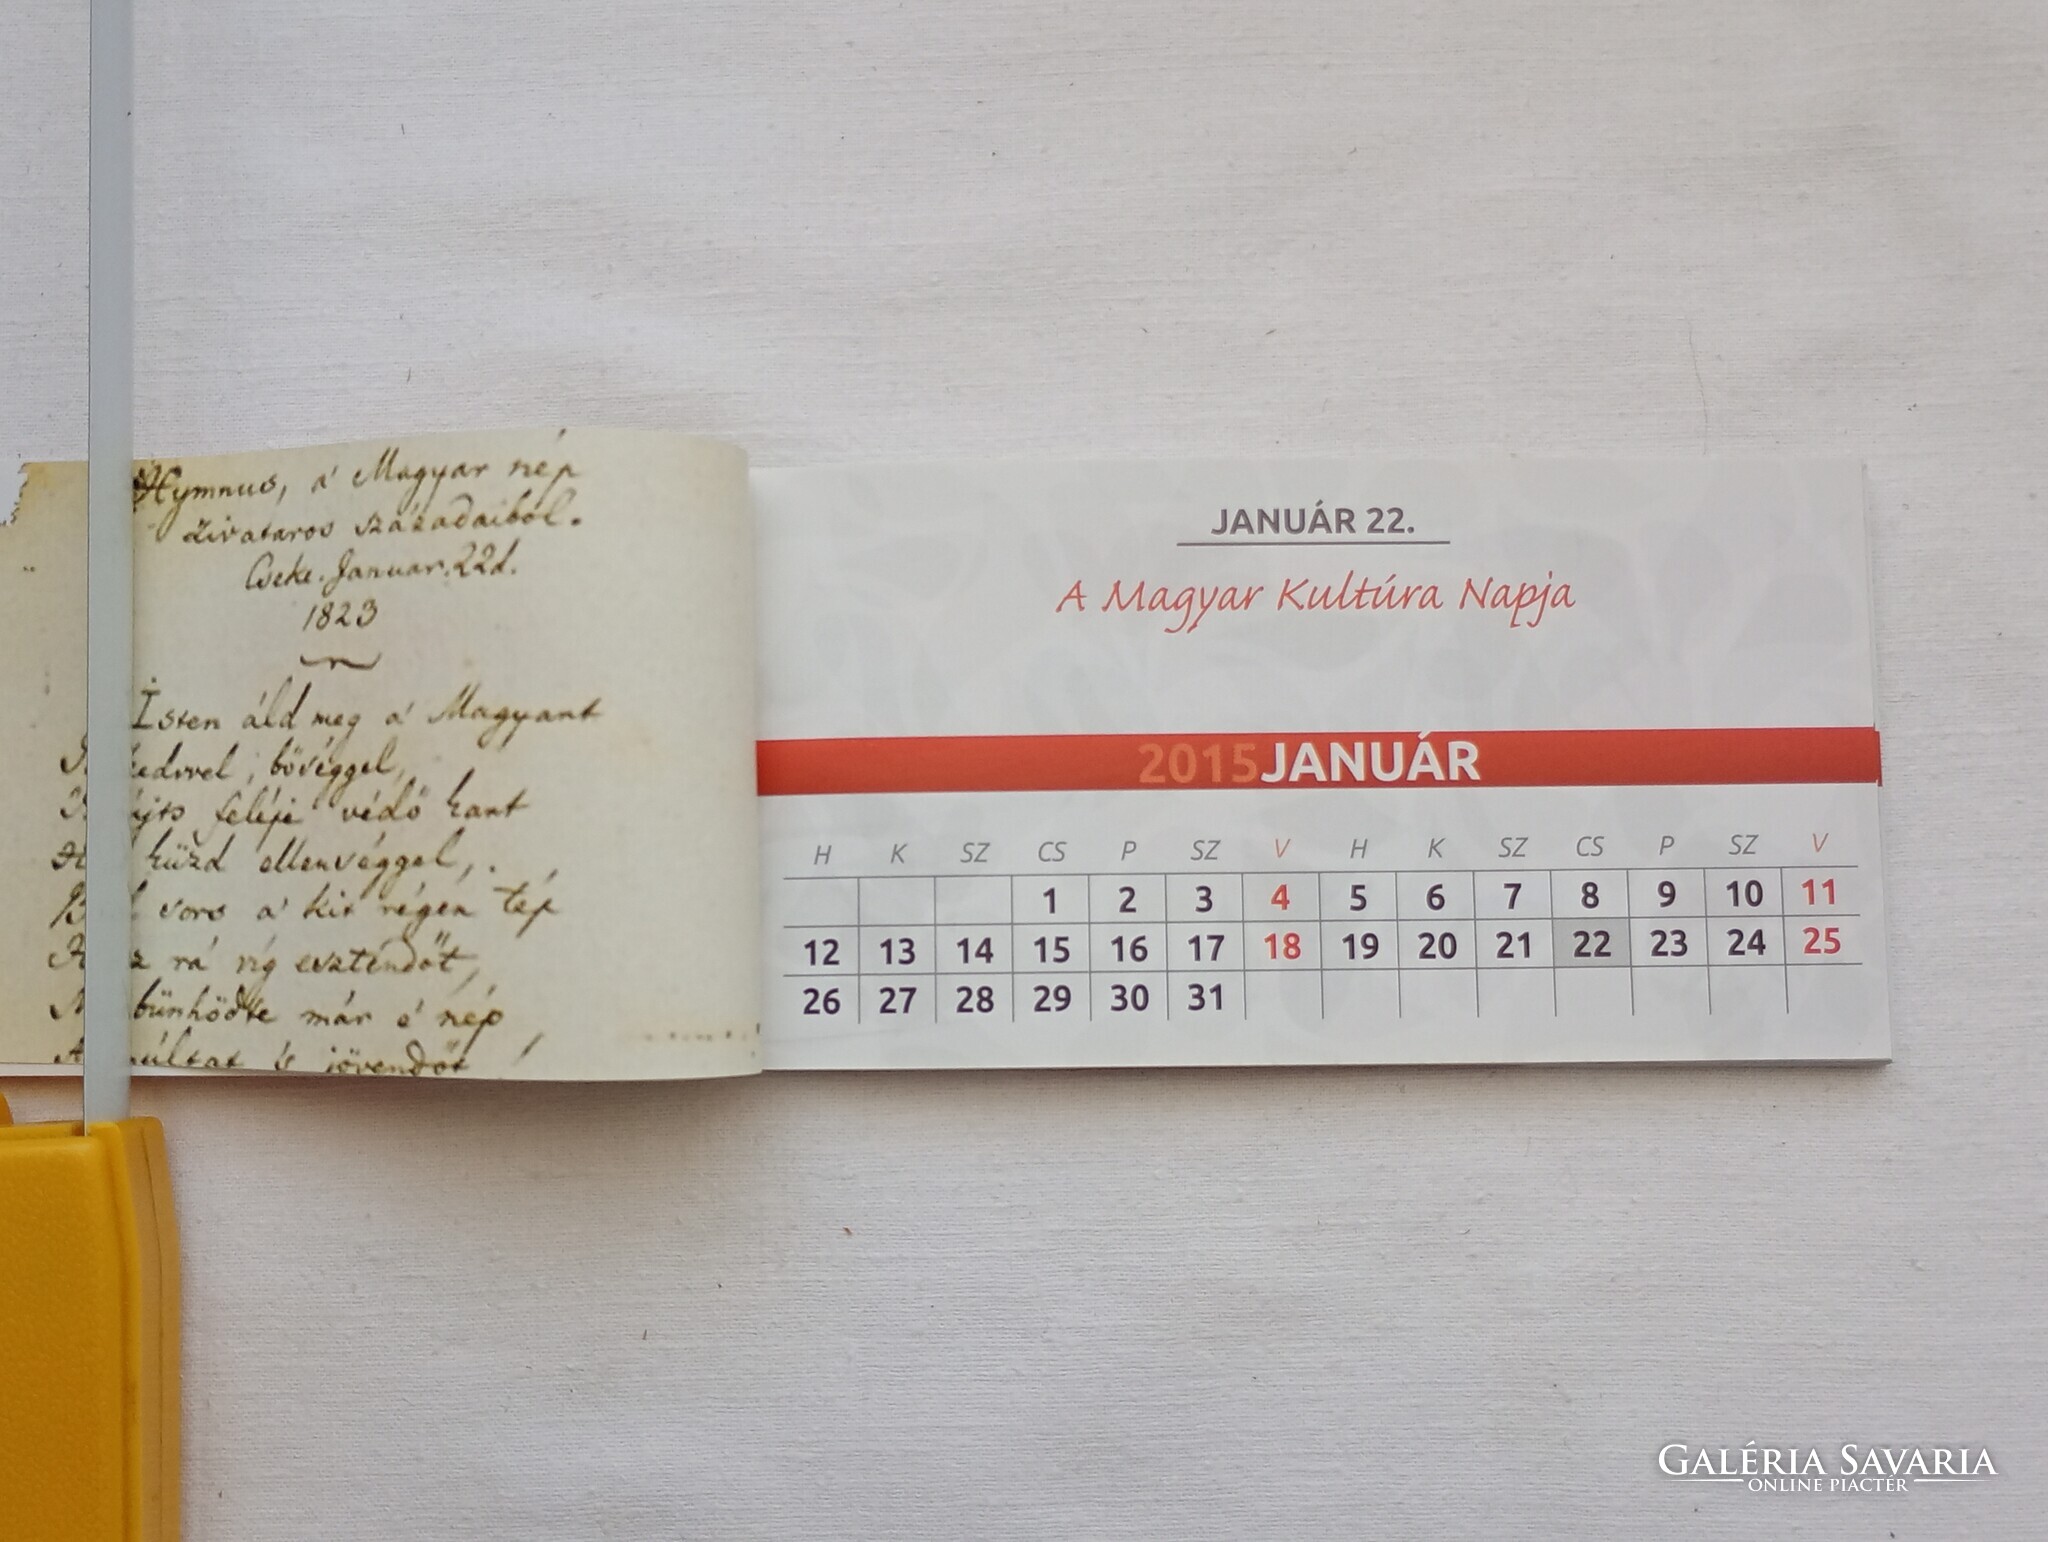 Hymnus, a' Magyar nép
zivataros századaiból.
Cseke. Januar. 22d.
1823
Isten áld meg a' Magyart
kedvvel, bövéggel,
felé je védő kart
küzd ellenséggel,
sors a' kit régen tép
rá víg esztendőt,
bünhödte már e' nép
múltat 's jövendőt
JANUÁR 22.
A Magyar Kultúra Napja
2015JANUÁR
H K SZ CS P SZ V H K SZ CS P SZ V
1 2 3 4 5 6 7 8 9 10 11
12 13 14 15 16 17 18 19 20 21 22 23 24 25
26 27 28 29 30 31
GALÉRIA SAVARIA
ONLINE PIACTÉR